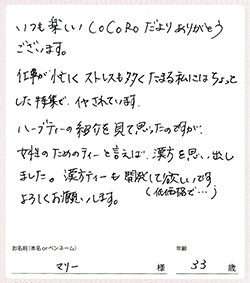 いつも楽しいCoCoRoだよりありがとう
ございます。
仕事が忙しくストレスも多くたまる私にはちょっと
した特集で、イヤされています。
ハーブティーの紹介を見て思ったのですが、
女性のためのティーと言えば、漢方を思い出し
ました。漢方ティーも開発して欲しいです
(低価格で…)
よろしくお願いします。
お名前(本名orペンネーム)
年齢
マリー 様 33 歳